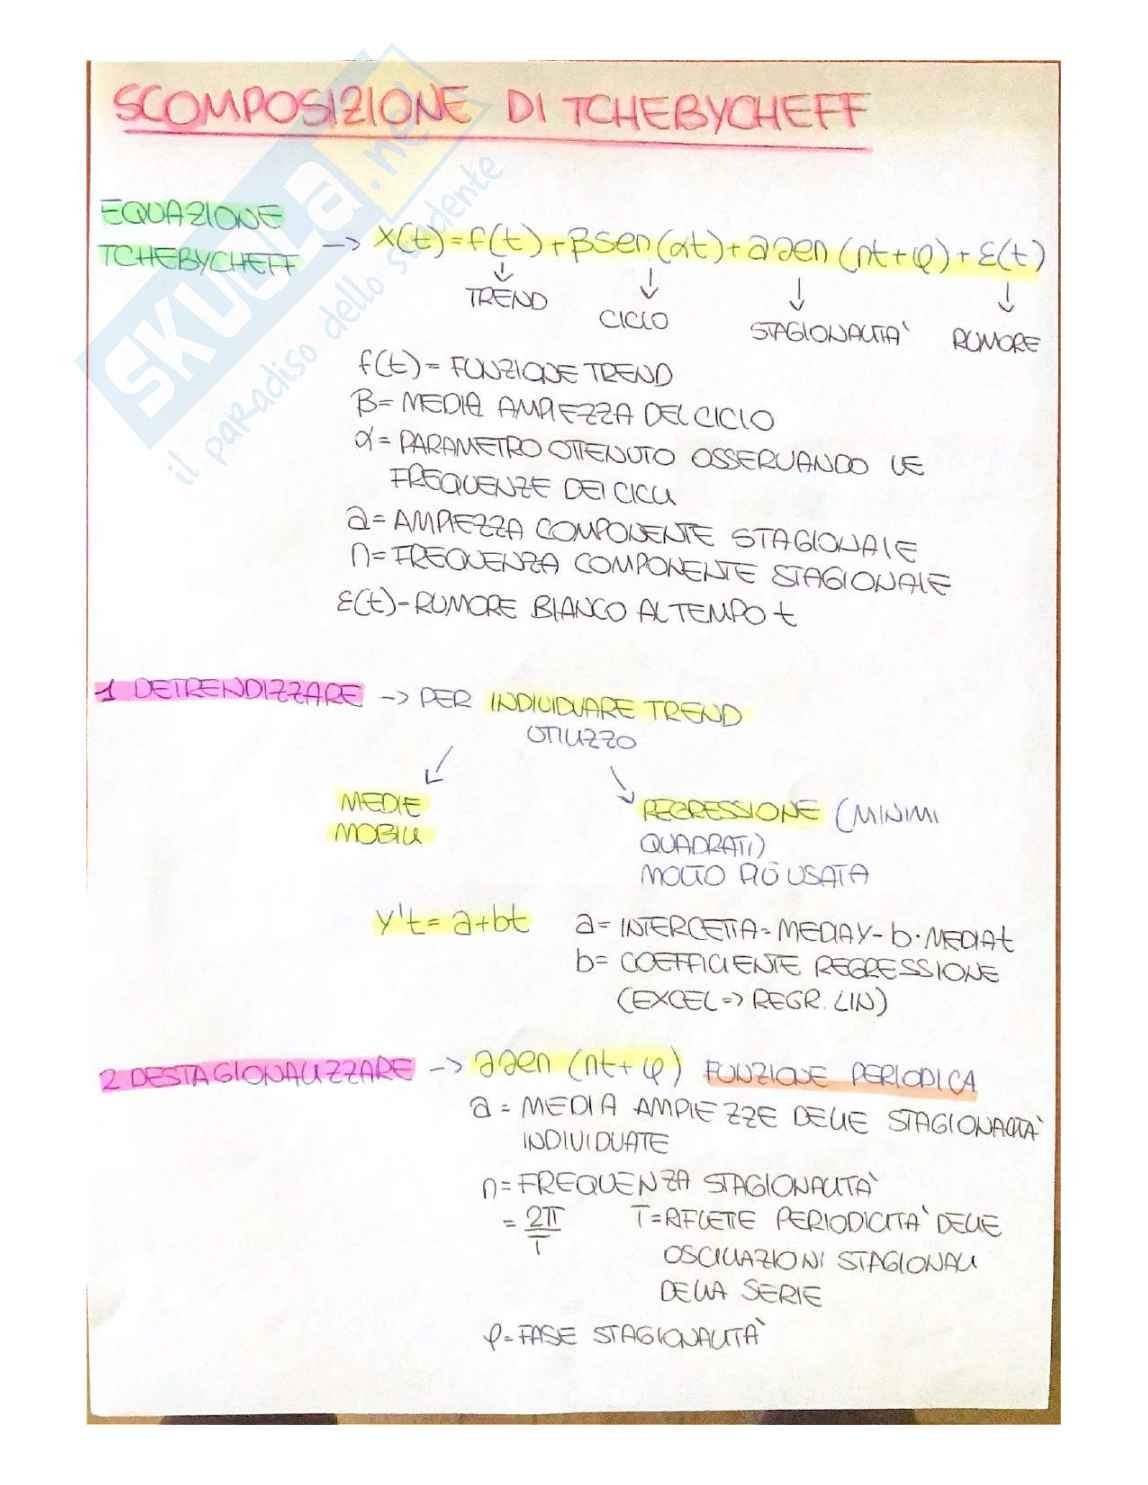 SCOMPOSIZIONE DI TCHEBYCHEFF
SKUOLA.net
il paradiso dello studente
EQUAZIONE
TCHEBYCHEFF -> X(t)=f(t)+βsen(αt)+a sen(nt+φ)+ε(t)
↓ ↓ ↓ ↓
TREND CICLO STAGIONALITÀ RUMORE
f(t)= FUNZIONE TREND
β= MEDIA AMPIEZZA DEL CICLO
α= PARAMETRO OTTENUTO OSSERVANDO LE
FREQUENZE DEI CICLI
a= AMPIEZZA COMPONENTE STAGIONALE
n= FREQUENZA COMPONENTE STAGIONALE
ε(t)-RUMORE BIANCO AL TEMPO t
1 DETRENDIZZARE -> PER INDIVIDUARE TREND
UTILIZZO
MEDIE
MOBILI
REGRESSIONE (MINIMI
QUADRATI)
MOLTO PIÙ USATA
Y't= a+bt
a= INTERCETTA= MEDIAY-b·MEDIAt
b= COEFFICIENTE REGRESSIONE
(EXCEL=> REGR. LIN)
2 DESTAGIONALIZZARE -> a sen (nt+φ) FUNZIONE PERIODICA
a = MEDIA AMPIEZZE DELLE STAGIONALITÀ
INDIVIDUATE
n= FREQUENZA STAGIONALITÀ
= 2π/T
T= RIFLETTE PERIODICITÀ DELLE
OSCILLAZIONI STAGIONALI
DELLA SERIE
φ= FASE STAGIONALITÀ